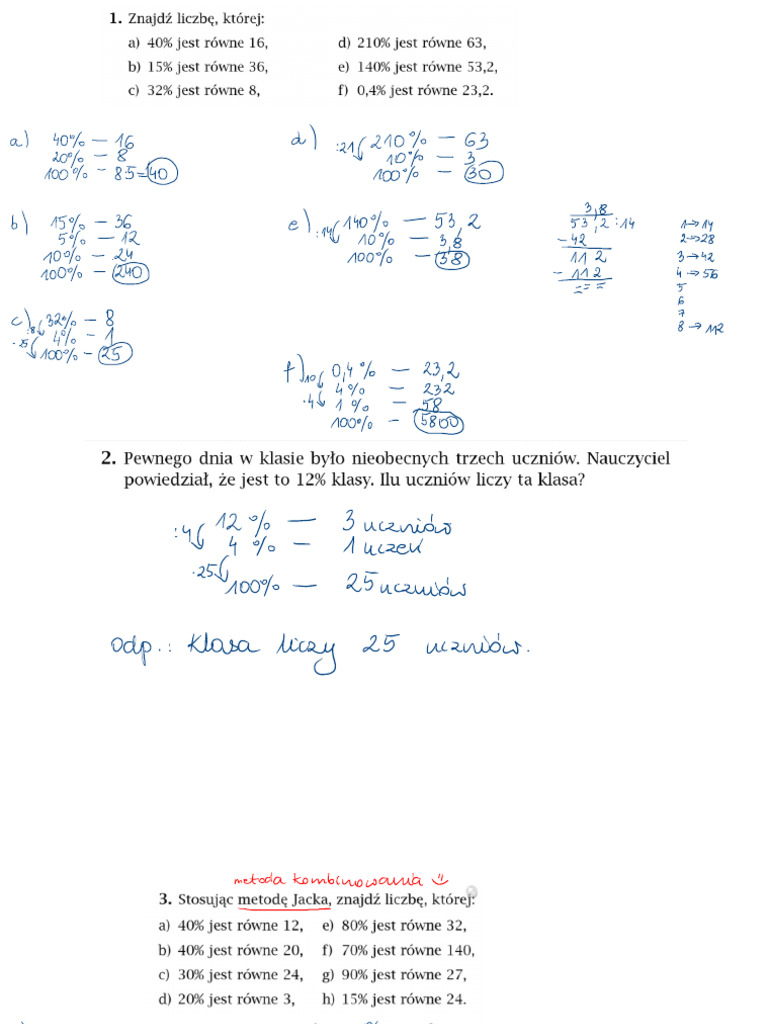 1. Znajdź liczbę, której:
a) 40% jest równe 16,
b) 15% jest równe 36,
c) 32% jest równe 8,
d) 210% jest równe 63,
e) 140% jest równe 53,2,
f) 0,4% jest równe 23,2.
a) 40% — 16
20% — 8
100% — 8·5=40
b) 15% — 36
5% — 12
10% — 24
100% — 240
c) :8 32% — 8
·25 4% — 1
100% — 25
d) :21 210% — 63
10% — 3
100% — 30
e) :14 140% — 53,2
10% — 3,8
100% — 38
3,8
53,2 : 14
-42
112
-112
= = =
1→14
2→28
3→42
4→56
5
6
7
8→112
f) ·10 0,4% — 23,2
4% — 232
·4 1% — 58
100% — 5800
2. Pewnego dnia w klasie było nieobecnych trzech uczniów. Nauczyciel
powiedział, że jest to 12% klasy. Ilu uczniów liczy ta klasa?
:4 12% — 3 uczniów
4% — 1 uczeń
·25 100% — 25 uczniów
odp.: Klasa liczy 25 uczniów.
metoda kombinowania
3. Stosując metodę Jacka, znajdź liczbę, której:
a) 40% jest równe 12,
b) 40% jest równe 20,
c) 30% jest równe 24,
d) 20% jest równe 3,
e) 80% jest równe 32,
f) 70% jest równe 140,
g) 90% jest równe 27,
h) 15% jest równe 24.